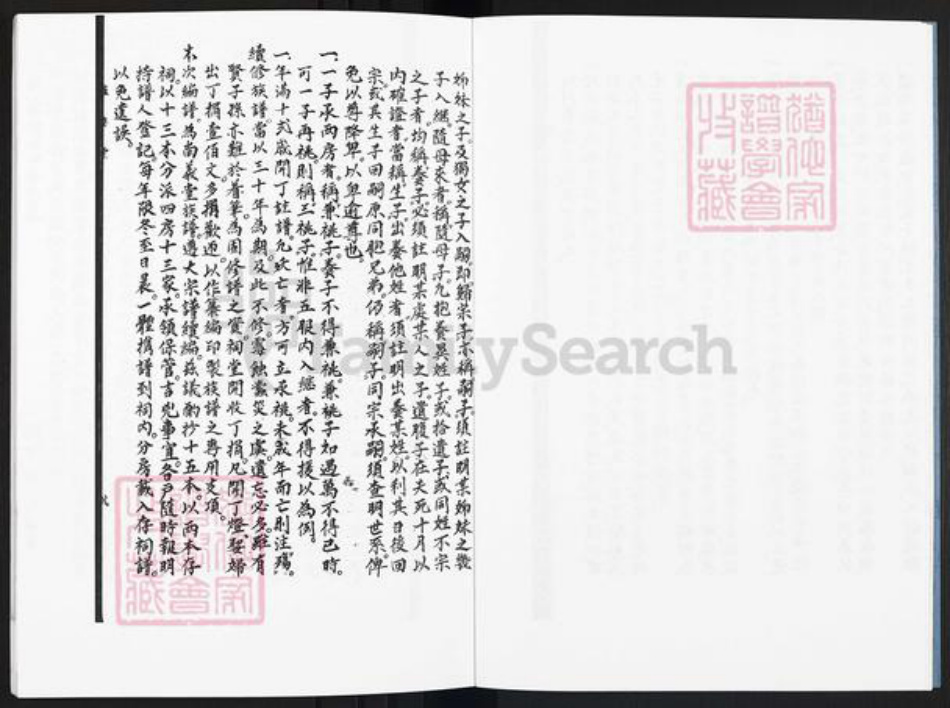 姊妹之子。及獨女之子入嗣。即歸宗子。亦稱嗣子。須註明某姊妹之幾
子入繼。隨母來者。稱隨母子。凡抱養異姓子。或拾遺子。或同姓不宗
之子者。均稱養子。必須註明某處某人之子。遺腹子在夫死十月以
內確證者。當稱生子。出養他姓者。須註明出養某姓。以利其日後回
宗。或其生子回嗣原同胞兄弟。仍稱嗣子。同宗承嗣。須查明世系。俾
免以尊降卑。以卑逾尊也。
一、一子承兩房者。稱兼祧子。養子不得兼祧。兼祧子如遇萬不得已時。
可一子再祧。則稱三祧子。惟非五服內入繼者。不得援以為例。
一、年滿十弍歲開丁註譜。凡妖亡者。方可立承祧。未成年而亡。則注殤。
續修族譜。當以三十年為期。及此不修。霉蝕靈災之虞。遺忘必多。雖有
賢子孫。亦難於着筆。為周修譜之資。祠堂開收丁捐。凡開丁燈。娶婦
出丁捐壹佰文。多捐歡迎。以作纂編印製族譜之專用支項。
本次編譜。為尚義堂族譜。遵大宗譜續編。茲議酌抄十五本。以兩本存
祠。以十三本分派四房十三家。承領保管。吉兇事宜。各戶隨時報明
持譜人登記。每年限冬至日晨。一體攜譜到祠內。分房載入存祠譜。
以免遺誤。
猶他家
譜學會
收藏
FamilySearch
猶他家
譜學會
收藏